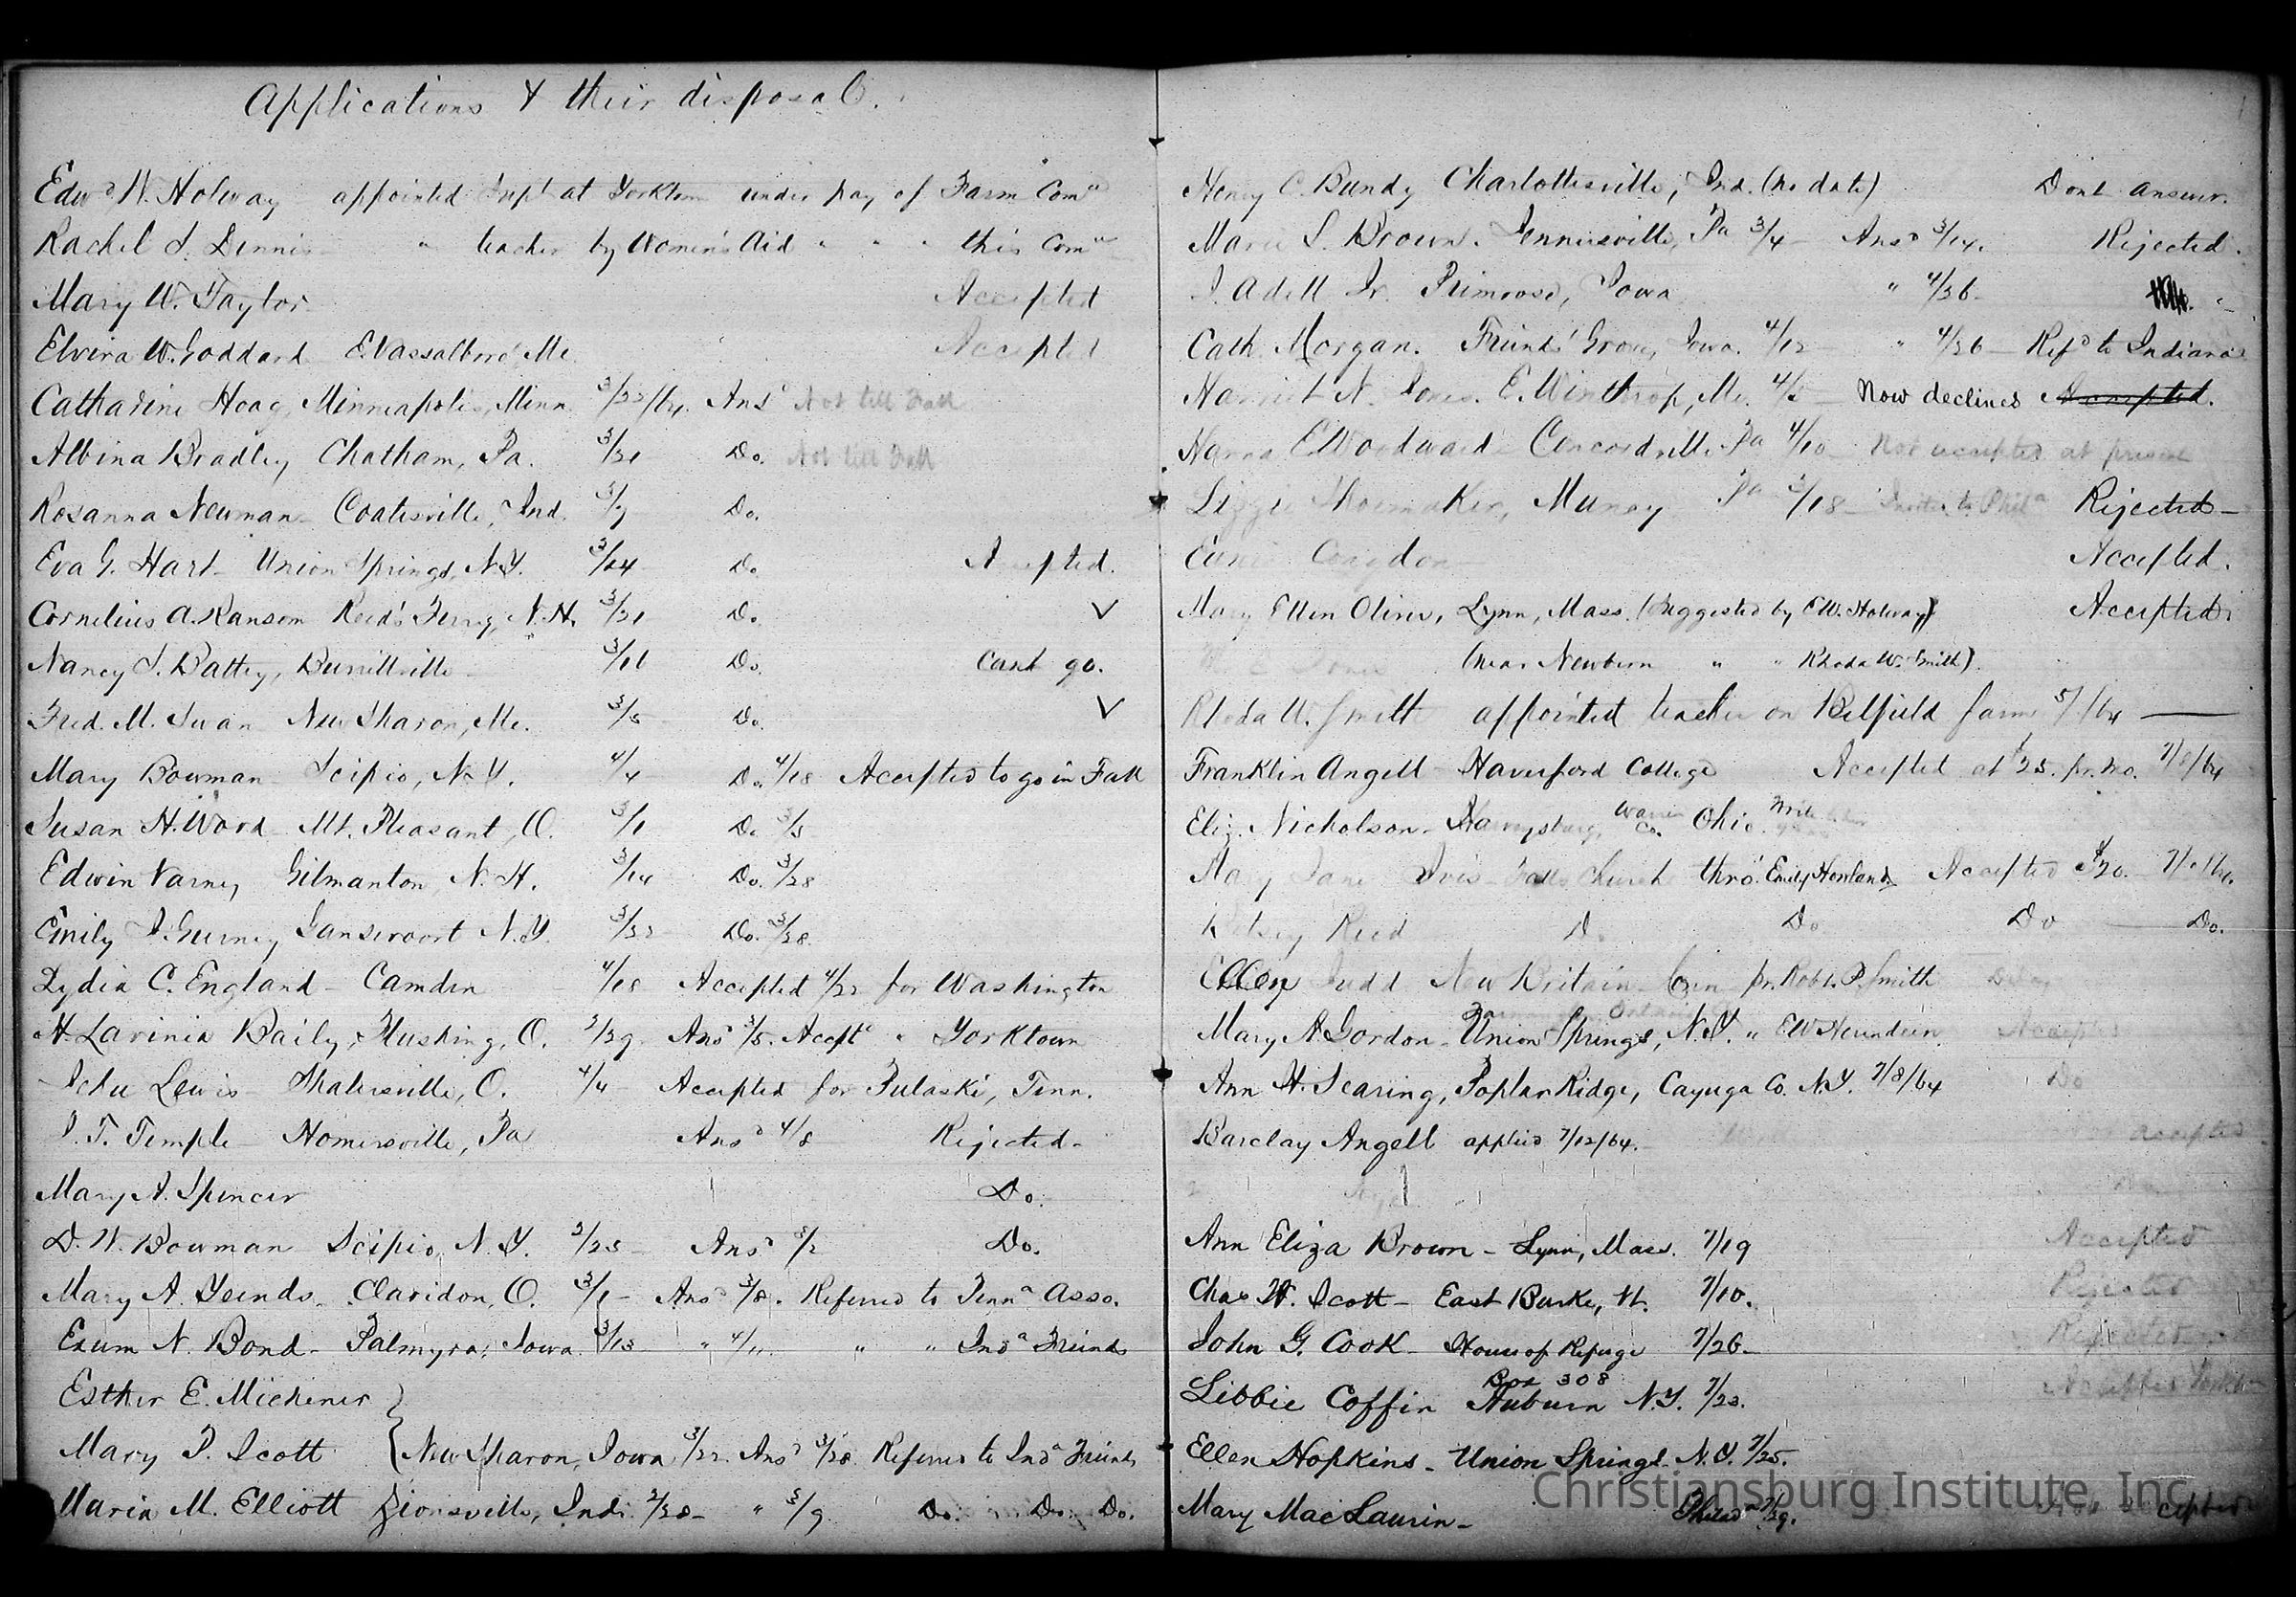 Applications & their disposal.
Edwd W. Holway appointed Supt at Yorktown under pay of Farm Comee
Rachel S. Dennis " teacher by Women's Aid " " " this Comee
Mary W. Taylor Accepted
Elvira W. Goddard E. Vassalboro' Me. Accepted
Catharine Hoag, Minneapolis, Minn. 3/22/64. Ansd Not till Fall
Albina Bradley Chatham, Pa. 3/21 Do. Not till Fall
Rosanna Neuman Coatesville, Ind. 3/7 Do.
Eva G. Hart Union Springs, N.Y. 3/24 Do. Accepted.
Cornelius A. Ransom Reed's Ferry, N.H. 3/21 Do. ✓
Nancy S. Battey, Burrillville 3/16 Do. Cant go.
Fred. M. Swan New Sharon, Me. 3/5 Do. ✓
Mary Bowman Scipio, N.Y. 4/4 Do. 4/18 Accepted to go in Fall
Susan H. Ward Mt. Pleasant, O. 3/1 Do. 3/5
Edwin Varney Gilmanton, N.H. 3/14 Do. 3/28
Emily S. Gurney Gansevoort N.Y. 3/22 Do. 3/28
Lydia C. England - Camden 4/18 Accepted 4/22 for Washington
H. Lavinia Baily, Flushing, O. 2/29 Ansd 3/5. Accptd " Yorktown
Lewis - Shalersville, O. 4/4 Accepted for Pulaski, Tenn.
S. T. Temple Homersville, Pa Ansd 4/8 Rejected -
Mary A. Spencer Do.
D. W. Bowman Scipio, N.Y. 2/25 Ansd 3/2 Do.
Mary A. Claridon, O. 3/1 - Ansd 3/8. Referred to Penna Asso.
Exum N. Bond - Palmyra, Iowa 3/13 " 4/11 " " Inda Friends
Esther E. Michener }
Mary P. Scott { New Sharon, Iowa 3/22. Ansd 3/28 Referred to Inda Friends
Maria M. Elliott Zionsville, Inda 2/28 - " 3/9 Do. Do. Do.
Henry C. Bundy Charlottesville, Ind. (no date) Dont answer.
Maria S. Brown. Jennersville, Pa 3/4 - Ansd 3/14. Rejected.
J. Adell Jr. Primrose, Iowa " 4/26 - "
Cath. Morgan. Friends' Grove, Iowa. 4/12 - " 4/26 - Refd to Indiana
Harriet N. Jones. E. Winthrop, Me. 4/5 - Now declines Accepted.
Hanna E. Woodward Concordville Pa 4/10 - Not accepted at present
Lizzie Shoemaker, Muncy Pa 3/18 - Invited to Phila Rejected -
Congdon Accepted.
Mary Ellen Oliver, Lynn, Mass. (Suggested by E.W. Holway) Accepted.
Jones (near Newbern " " Rhoda W. Smith).
Rhoda W. Smith appointed teacher on Belfield farm 5/ /64 -
Franklin Angell - Haverford College Accepted at $25. pr. mo. 7/8/64
Eliz. Nicholson - Harveysburg, Warren Co. Ohio. Write
Mary Jane Falls Church thro' Emily Howland Accepted $20.
Betsey Reed Do Do Do Do.
Ellen Judd New Britain Conn pr. Robt. P. Smith
Mary A. Gordon - Union Springs, N.Y. " Accepted
Ann H. Searing, Poplar Ridge, Cayuga Co. N.Y. 7/8/64 Do
Barclay Angell applied 7/12/64. accepted
Ann Eliza Brown - Lynn, Mass. 7/19 Accepted
Chas W. Scott - East Burke, Vt. 7/10. Rejected
John G. Cook - House of Refuge 7/26 - Rejected
Libbie Coffin Box 308 Auburn N.Y. 7/23. Accepted
Ellen Hopkins - Union Springs N.Y. 7/25.
Mary MacLaurin - Philada 7/29. Accepted
Christiansburg Institute, Inc.